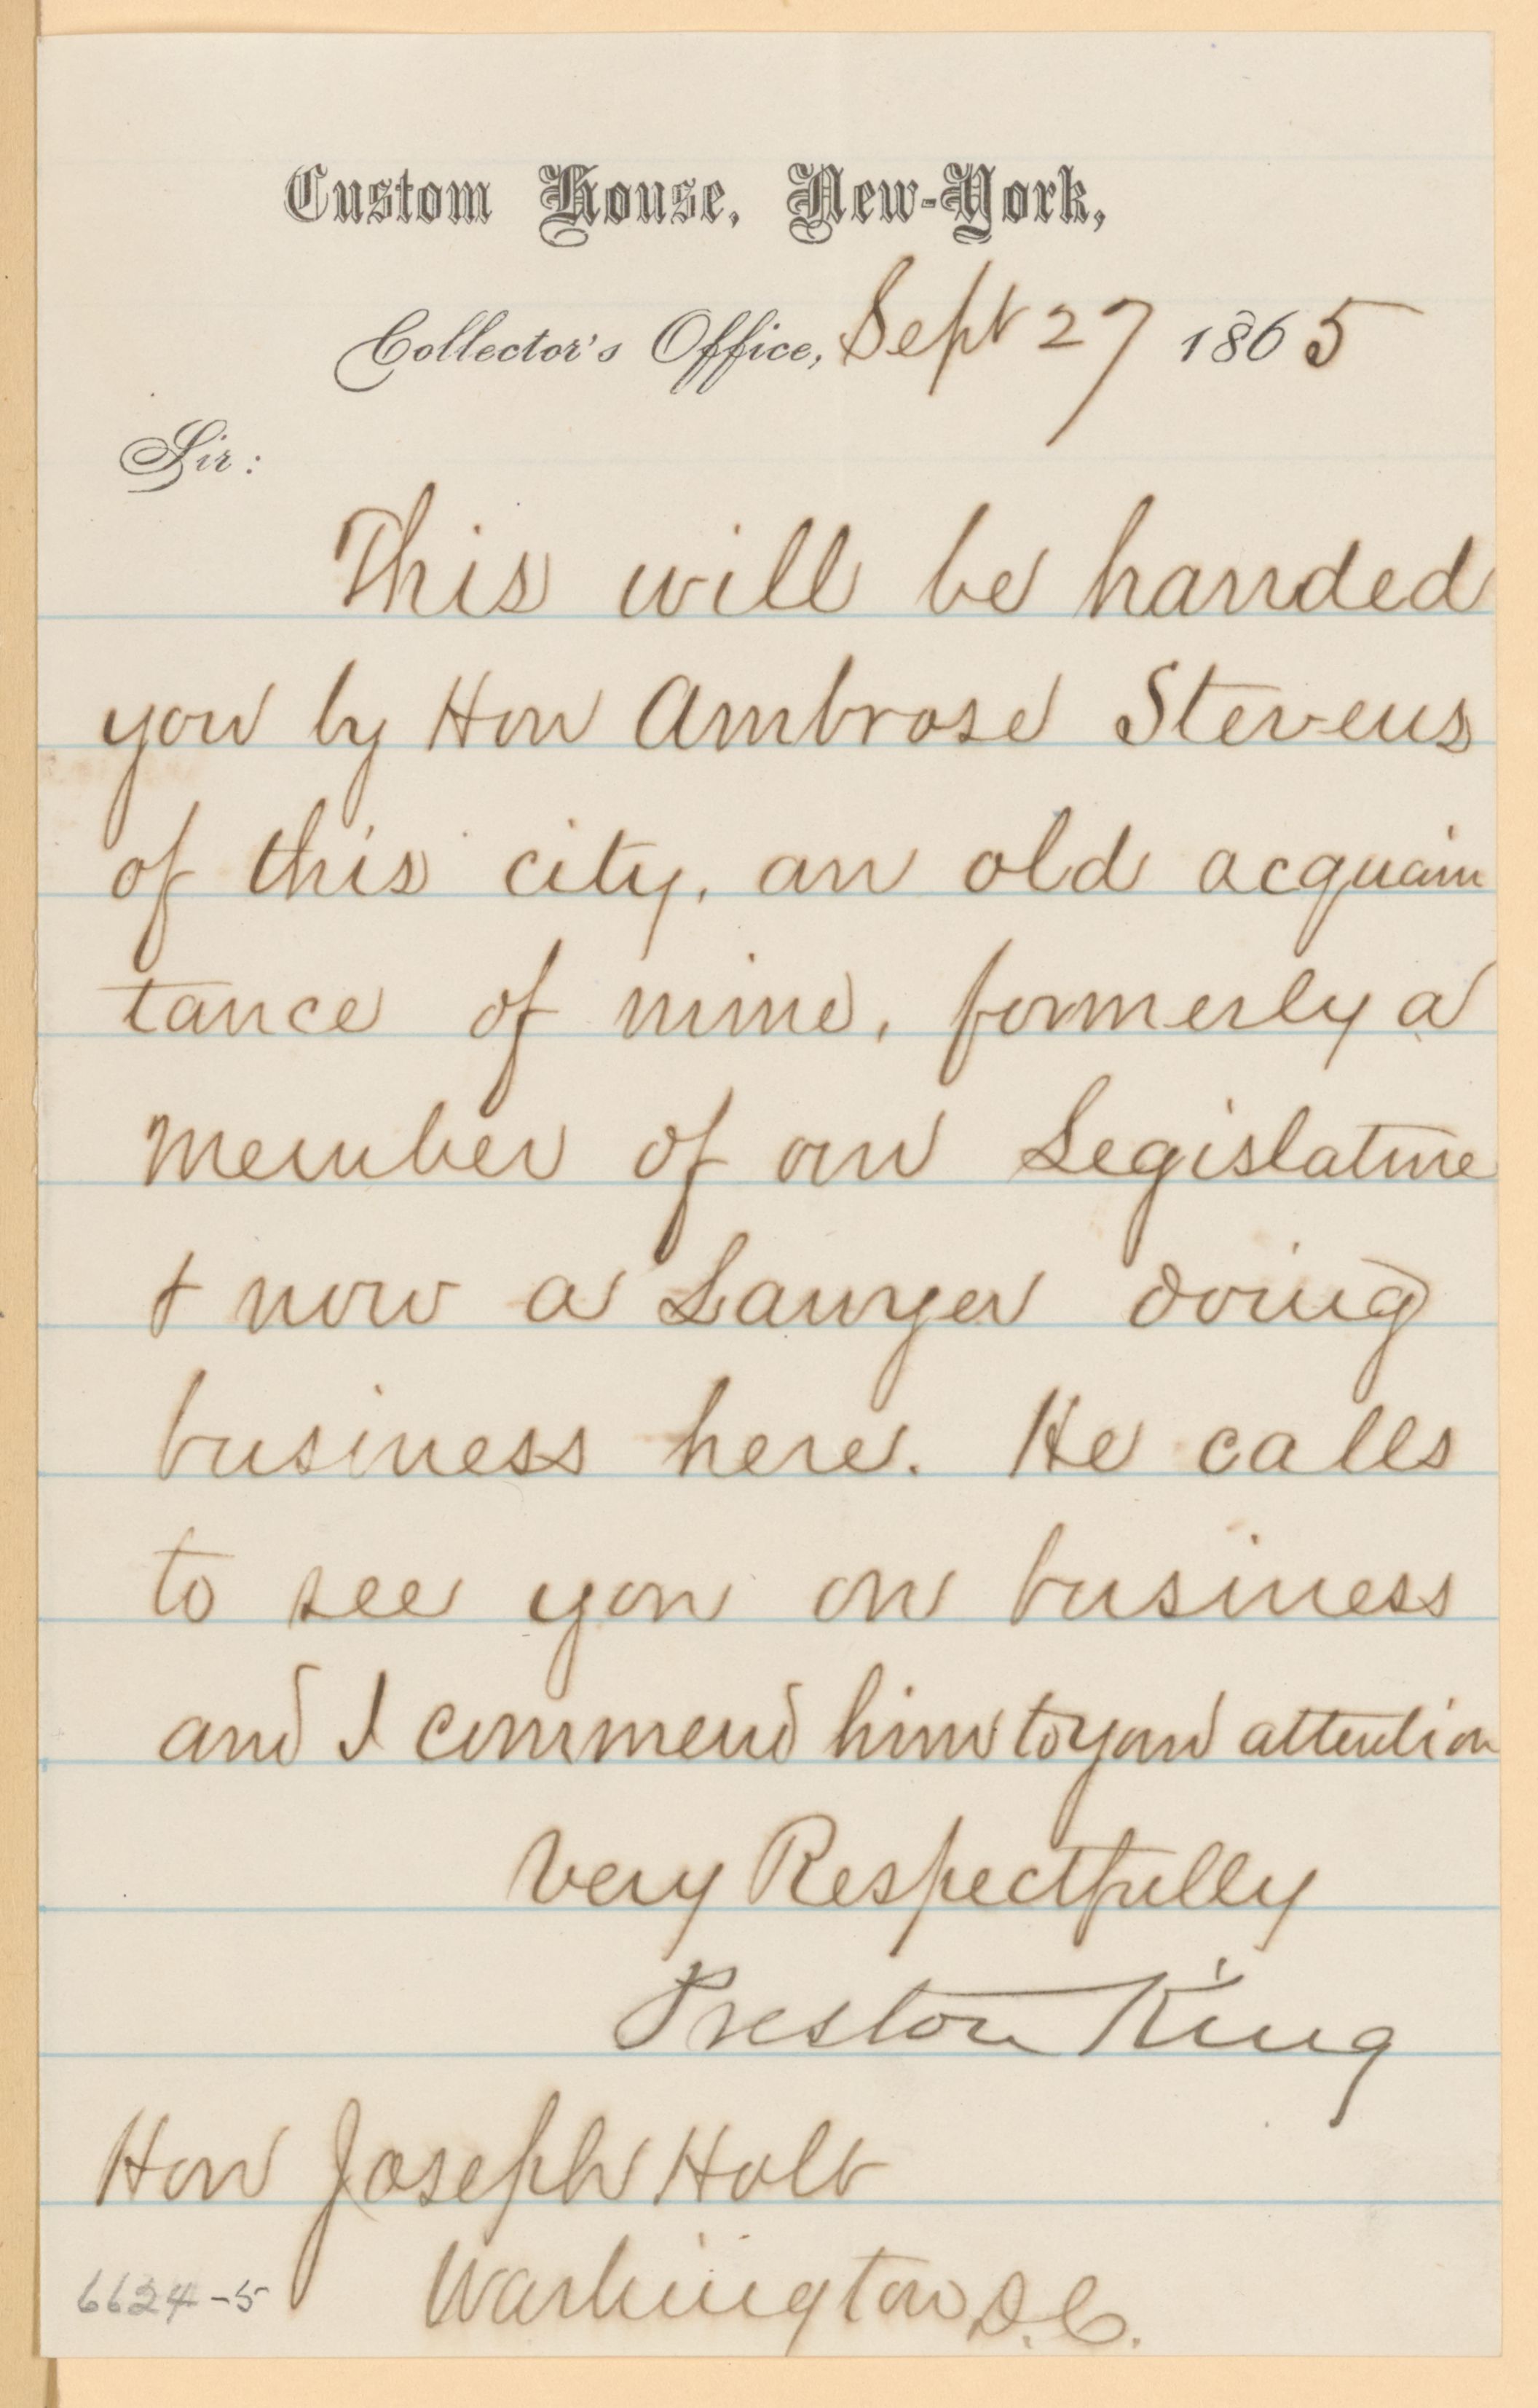 Custom House, New-York,
Collector's Office, Sept 27 1865
Sir:
This will be handed
you by Hon Ambrose Stevens
of this city, an old acquain
tance of mine, formerly a
member of our Legislature
& now a Lawyer doing
business here. He calls
to see you on business
and I commend him to your attention
Very Respectfully
Preston King
Hon Joseph Holt
Washington D.C.
6624-5